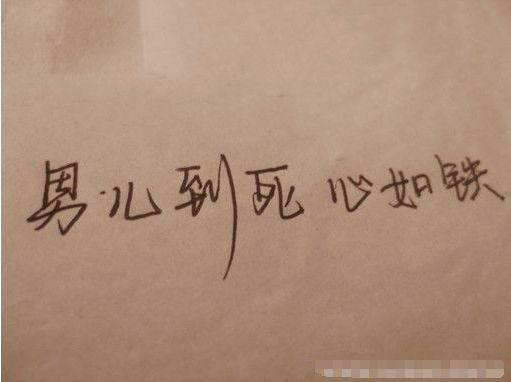 男儿到死心如铁